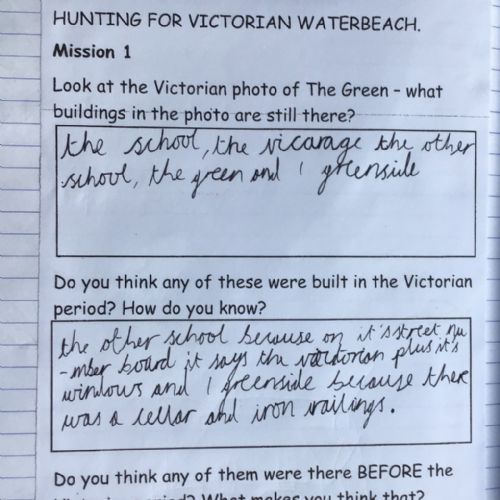 HUNTING FOR VICTORIAN WATERBEACH.
Mission 1
Look at the Victorian photo of The Green - what
buildings in the photo are still there?
the school, the vicarage the other
school, the green and 1 greenside
Do you think any of these were built in the Victorian
period? How do you know?
the other school because on it's street nu
-mber board it says the plus it's
windows and 1 greenside because there
was a cellar and iron railings.
Do you think any of them were there BEFORE the
Victorian period? What makes you think that?